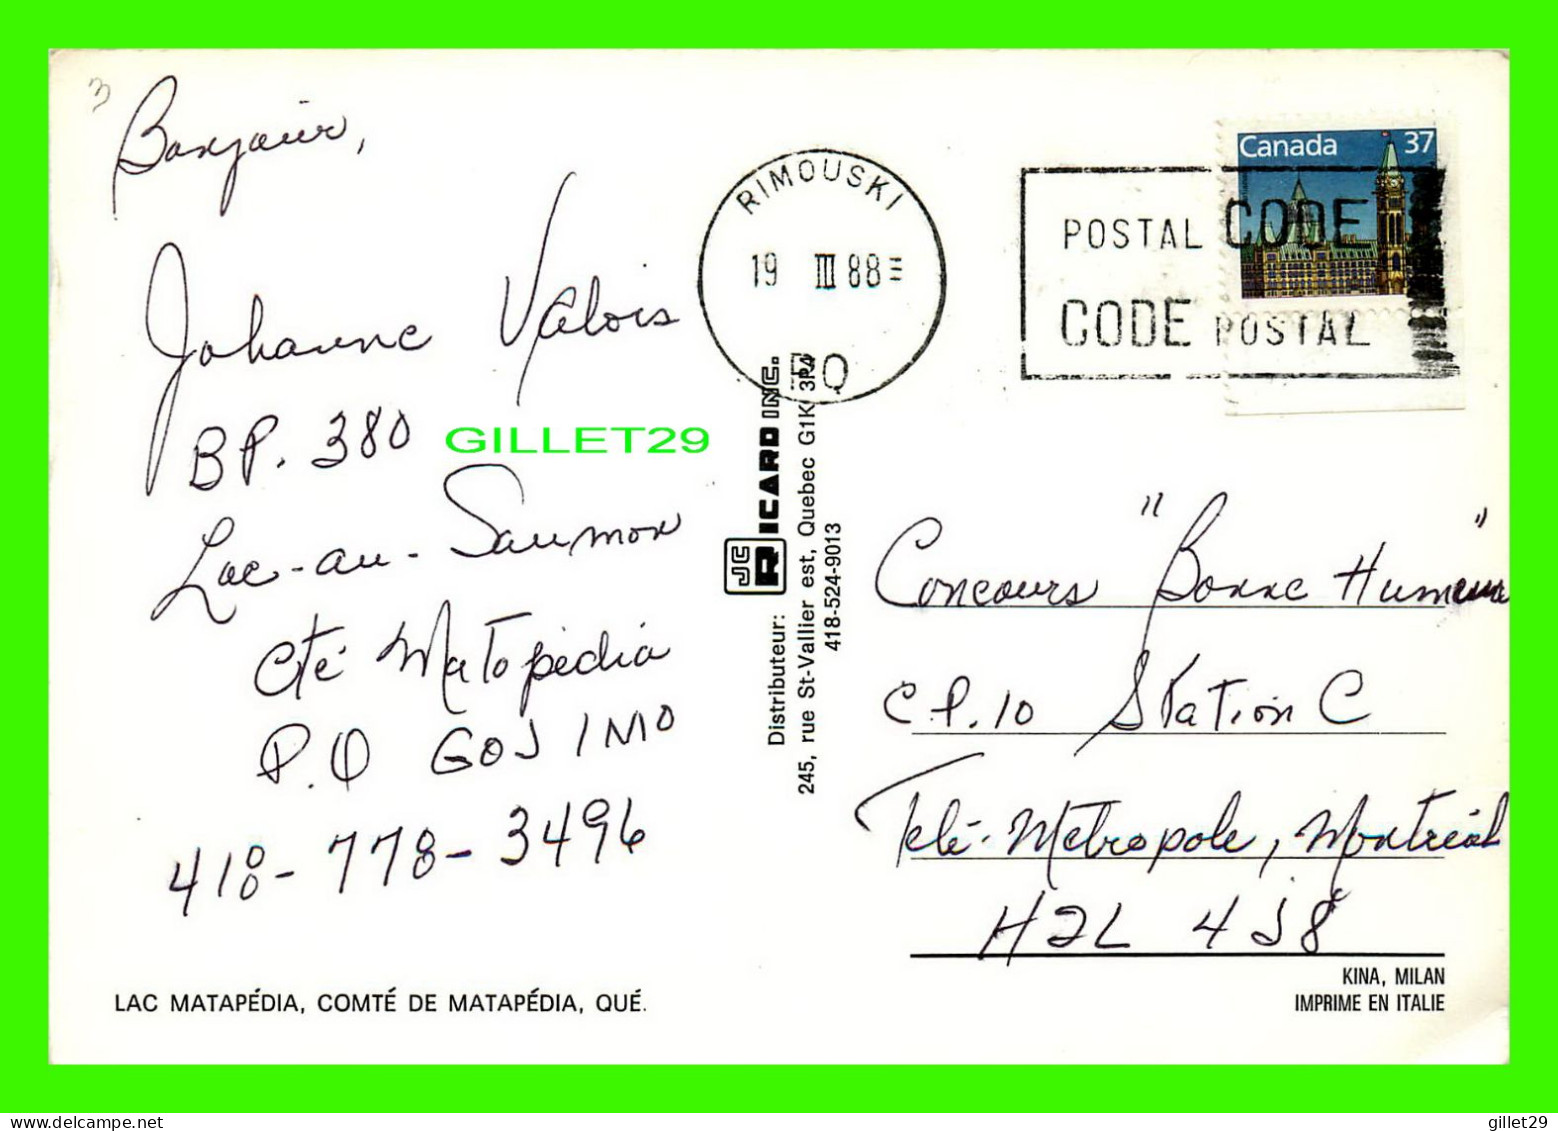 3
Bonjour,
Johanne Valois
BP. 380
Lac-au-Saumon
Cté Matapédia
P.Q G0J 1M0
418-778-3496
LAC MATAPÉDIA, COMTÉ DE MATAPÉDIA, QUÉ.
GILLET29
JC RICARD INC.
Distributeur:
245, rue St-Vallier est, Quebec G1K 3P4
418-524-9013
RIMOUSKI
19 III 88
PQ
POSTAL CODE
CODE POSTAL
Canada 37
Concours "Bonne Humeur"
C.P. 10 Station C
Télé-Métropole, Montréal
H2L 4J8
KINA, MILAN
IMPRIME EN ITALIE
gillet29